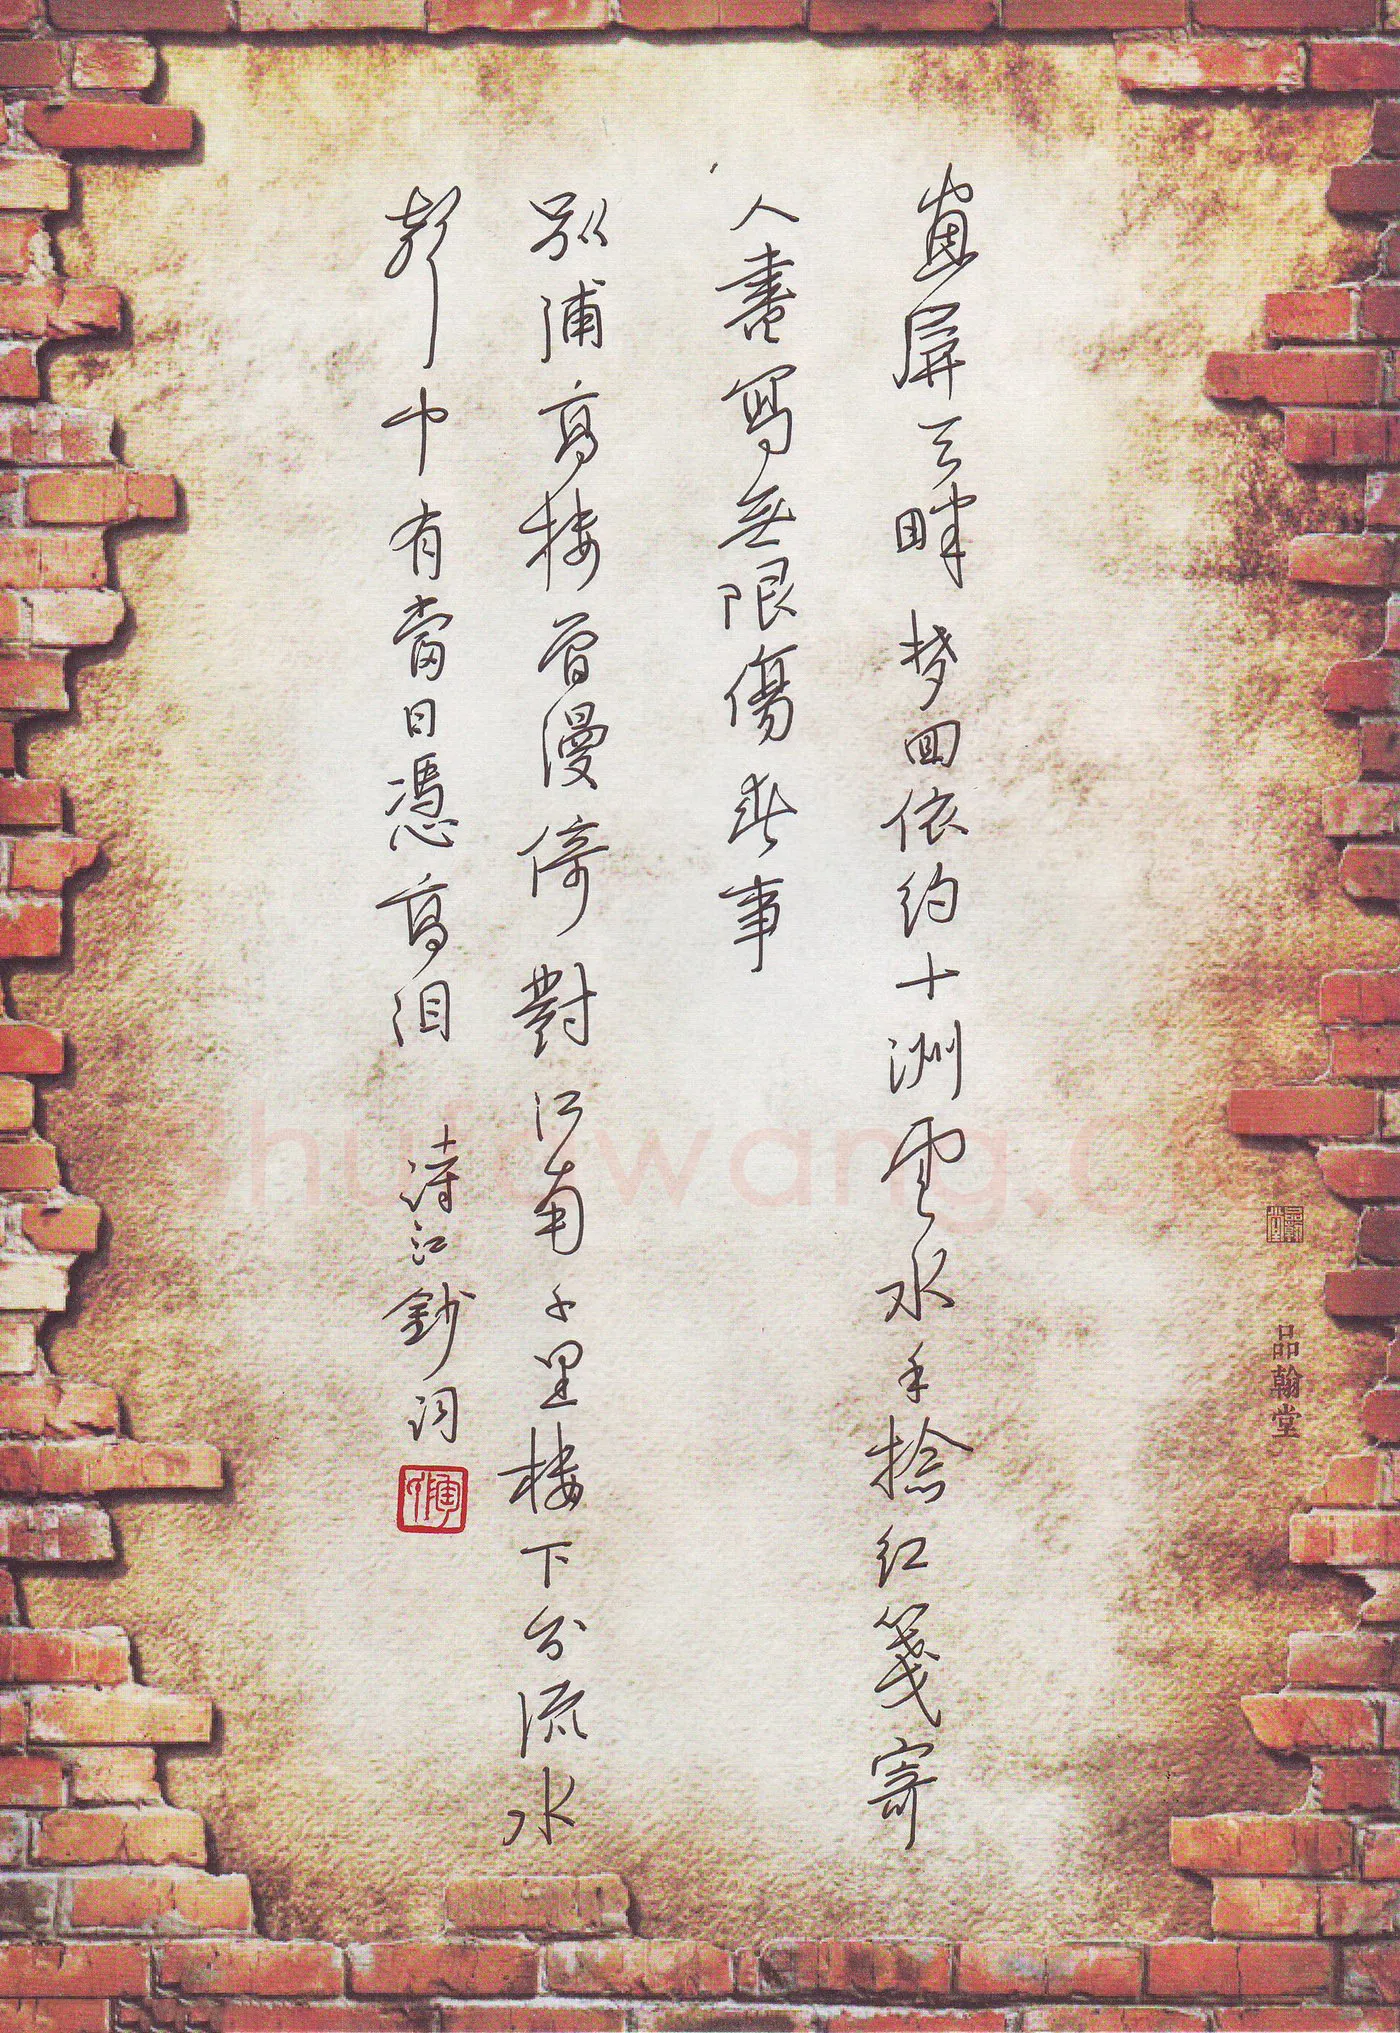 畫屏天畔梦回依约十洲雲水手捻红箋寄
人書寫無限傷春事
别浦高楼曾漫倚對江南千里楼下分流水
聲中有當日憑高泪 涛江鈔词
品翰堂
hufawang.c